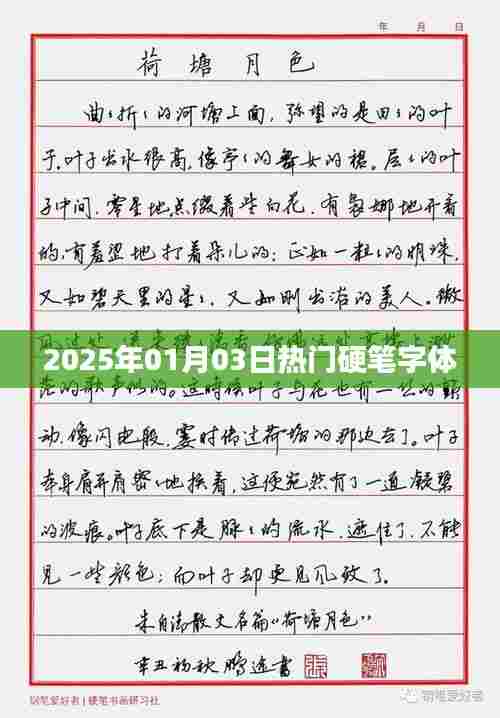 年 月 日
荷塘月色
曲〻折〻的河塘上面,弥望的是田〻的叶
子。叶子出水很高,像亭〻的舞女的裙。层〻的叶
子中间,零星地点缀着些白花,有袅娜地开着
的,有羞涩地打着朵儿的;正如一粒〻的明珠,
又如碧天里的星〻,又如刚出浴的美人。微
2025年01月03日热门硬笔字体
茫的歌声似的。这时候叶子与花也有一丝的颤
动,像闪电般,霎时传过荷塘的那边去了。叶子
本身肩并肩密〻地挨着,这便宛然有了一道凝碧
的波痕。叶子底下是脉〻的流水,遮住了,不能
见一些颜色;而叶子却更见风致了。
朱自清散文名篇《荷塘月色》
辛丑初秋 鹏远书
钢笔爱好者 | 硬笔书画研习社
钢笔爱好者